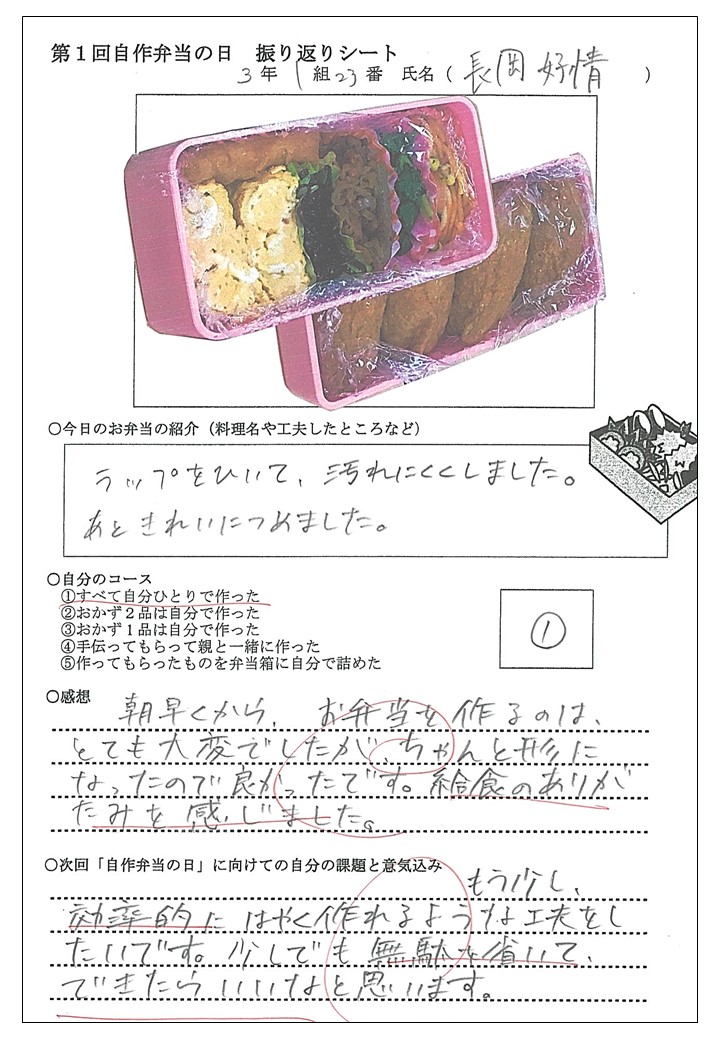 第1回自作弁当の日 振り返りシート
3年 1組23番 氏名( 長岡 好情 )
○今日のお弁当の紹介(料理名や工夫したところなど)
ラップをひいて、汚れにくくしました。
あときれいにつめました。
○自分のコース
①すべて自分ひとりで作った
②おかず2品は自分で作った
③おかず1品は自分で作った
④手伝ってもらって親と一緒に作った
⑤作ってもらったものを弁当箱に自分で詰めた
①
○感想
朝早くから、お弁当を作るのは、
とても大変でしたが、ちゃんと形に
なったので良かったです。給食のありが
たみを感じました。
○次回「自作弁当の日」に向けての自分の課題と意気込み
もう少し、
効率的にはやく作れるような工夫をし
たいです。少しでも無駄を省いて、
できたらいいなと思います。